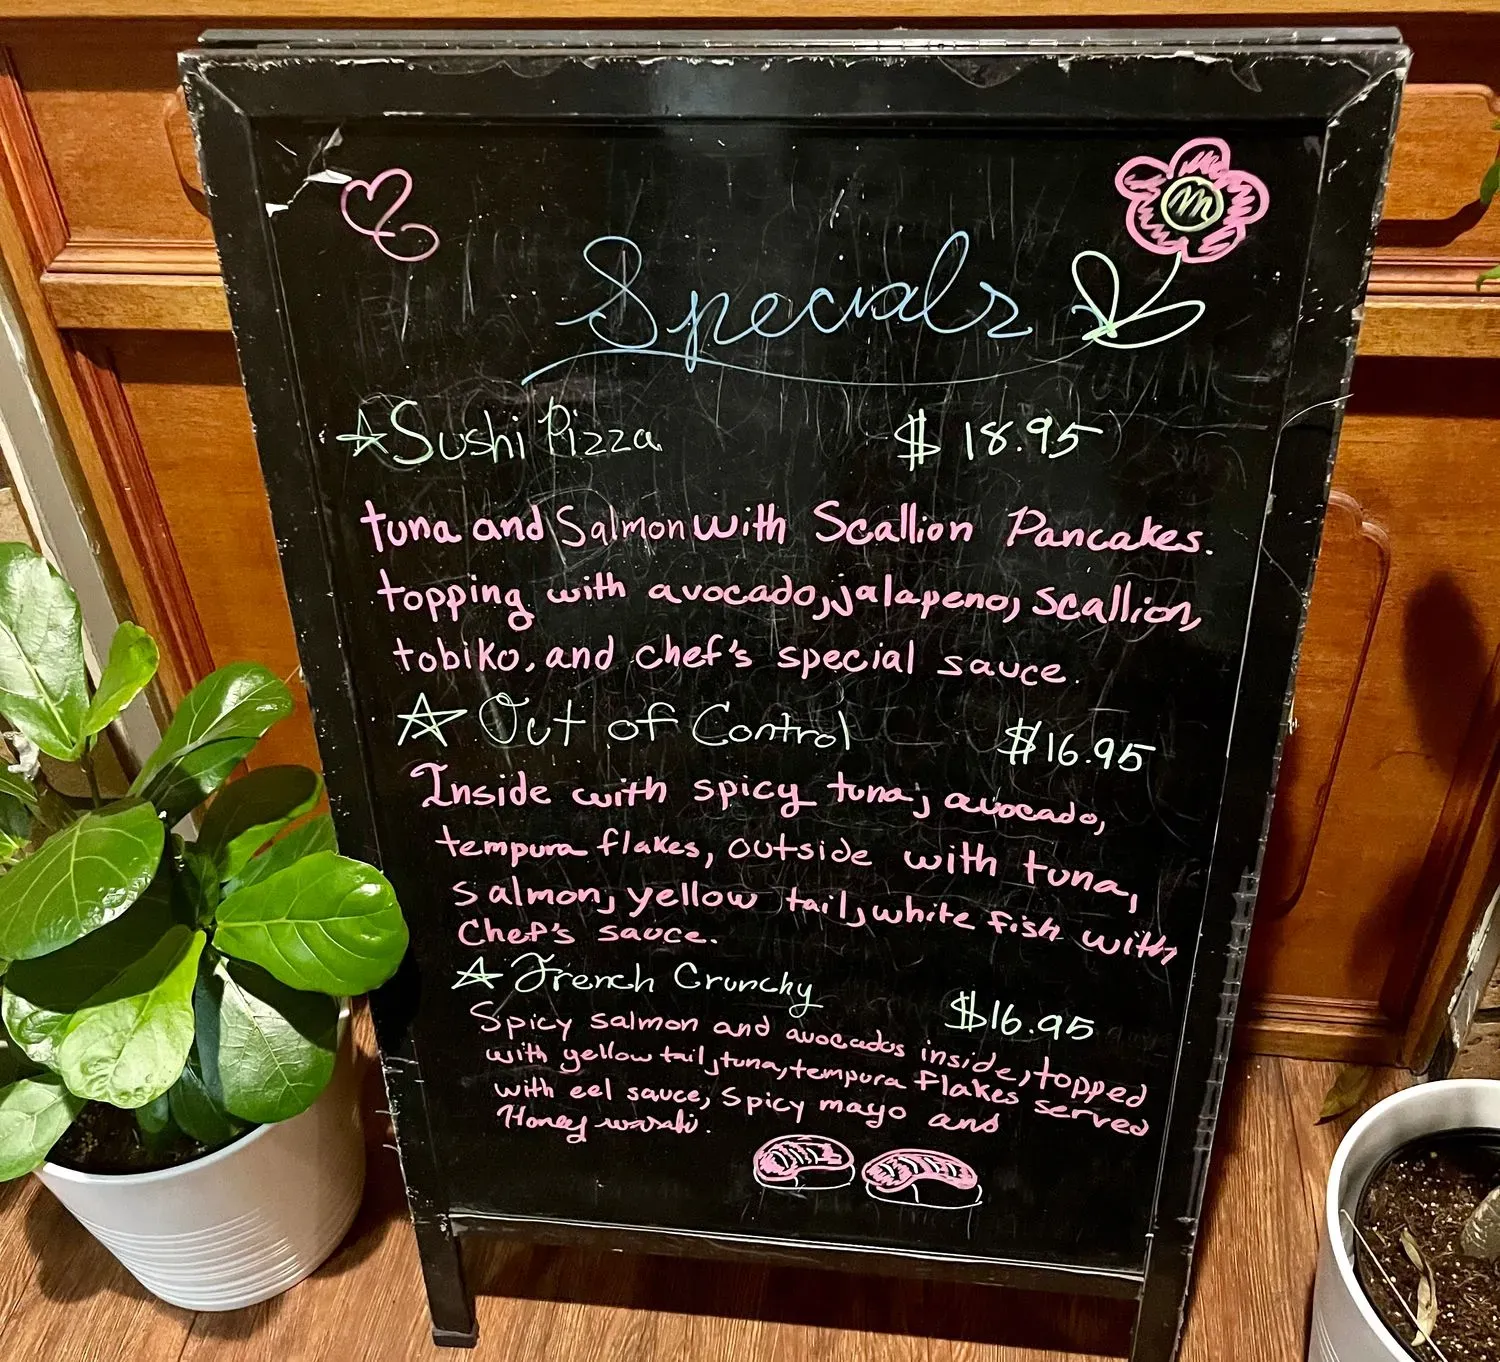 Specials
Sushi Pizza $ 18.95
tuna and Salmon with Scallion Pancakes.
topping with avocado, jalapeno, scallion,
tobiko, and chef's special sauce.
Out of Control $16.95
Inside with spicy tuna, avocado,
tempura flakes, outside with tuna,
salmon, yellow tail, white fish with
Chef's sauce.
French Crunchy $16.95
Spicy salmon and avocados inside, topped
with yellow tail, tuna, tempura flakes served
with eel sauce, spicy mayo and
Honey wasabi.